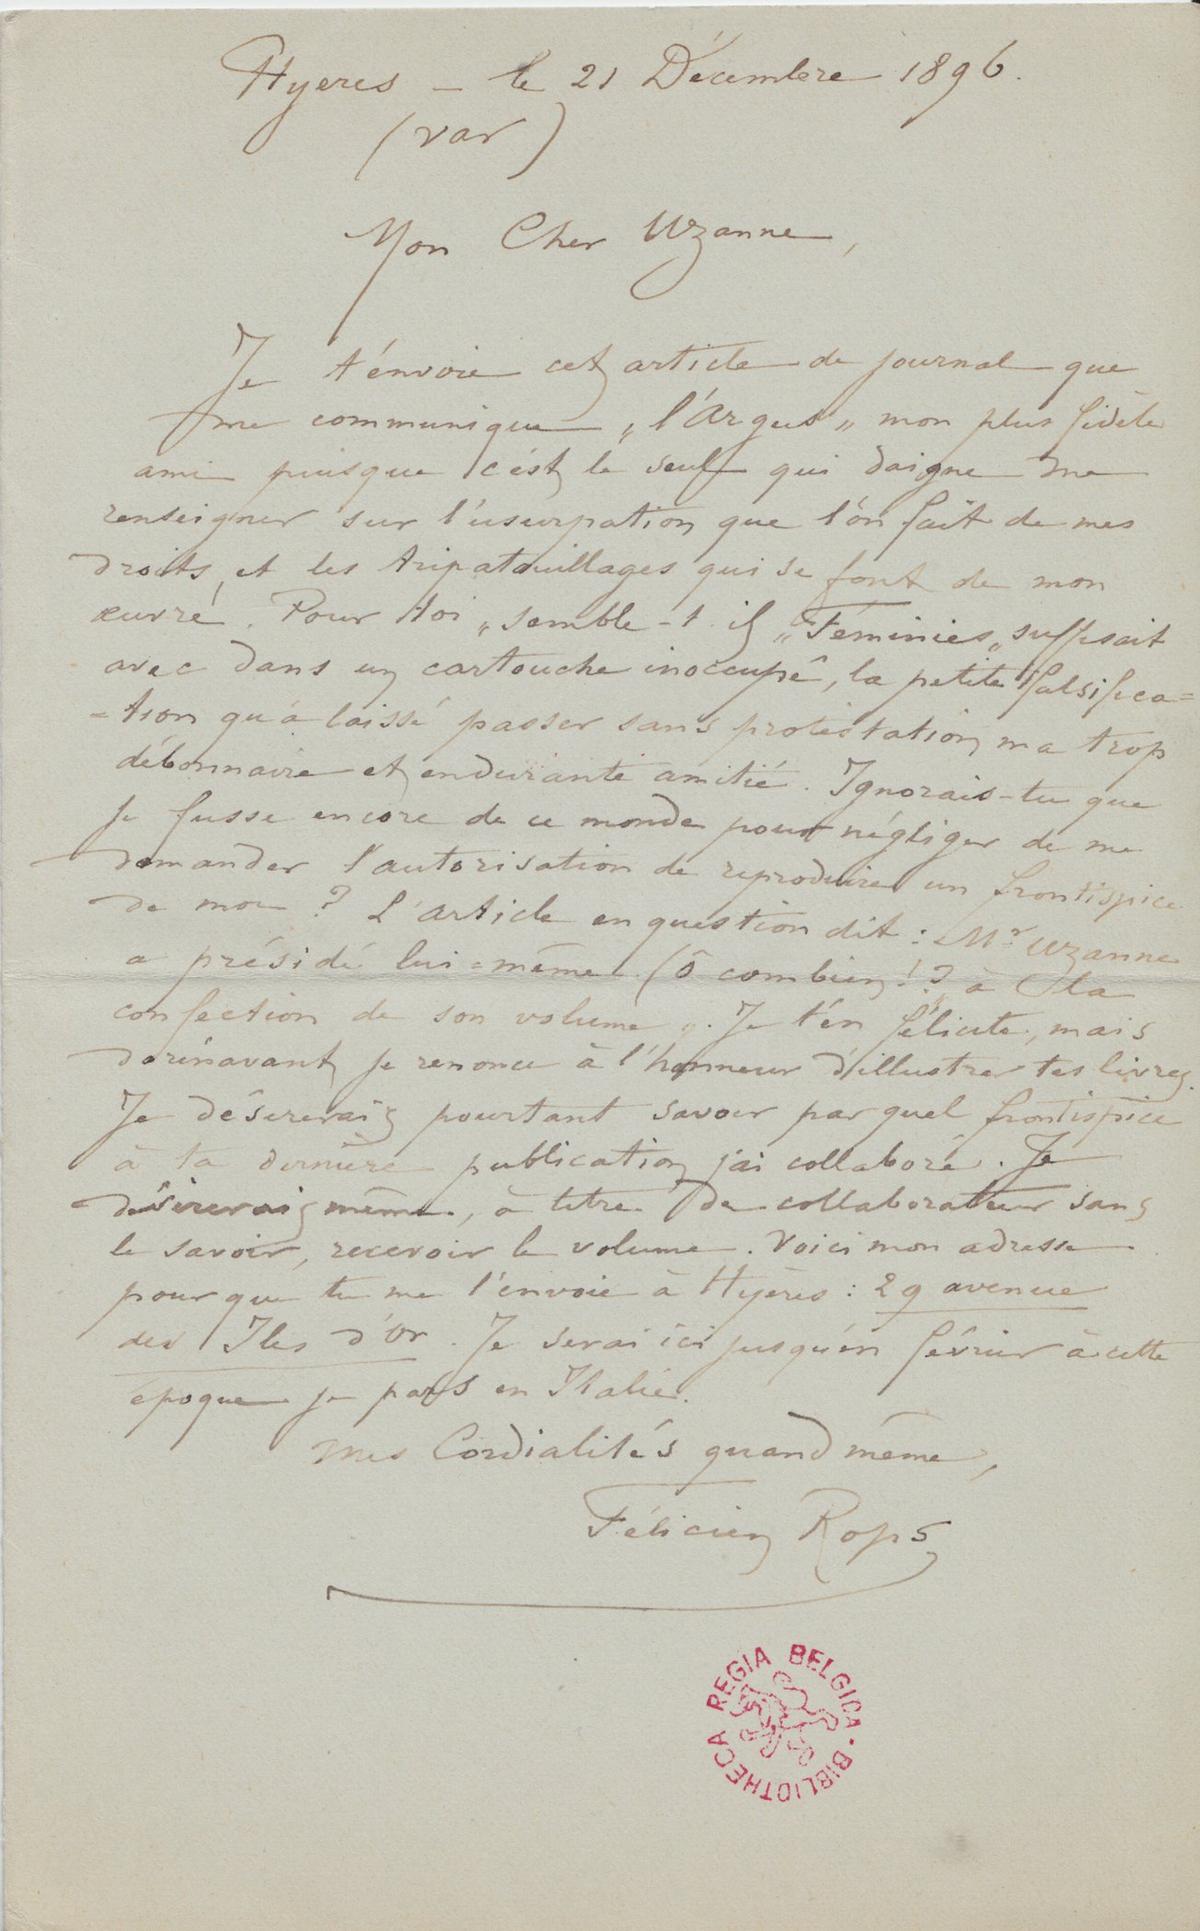 Hyeres – le 21 Décembre 1896.
(Var)
Mon Cher Uzanne,
Je t'envoie cet article de journal que
me communique „l'Argus„ mon plus fidèle
ami puisque c'est le seul qui daigne me
renseigner sur l'usurpation que l'on fait de mes
droits, et les tripatouillages qui se font de mon
œuvre. Pour toi „semble-t-il „Féminies„ suffisait
avec dans un cartouche inoccupé, la petite falsifica=
=tion qu'a laissé passer sans protestation ma trop
débonnaire et endurante amitié. Ignorais-tu que
je fusse encore de ce monde pour négliger de me
demander l'autorisation de reproduire un frontispice
de moi ? L'article en question dit : „Mr Uzanne
a présidé lui=même (ô combien !? à la
confection de son volume „. Je t'en félicite, mais
dorénavant je renonce à l'honneur d'illustrer tes livres.
Je désirerais pourtant savoir par quel frontispice
à ta dernière publication j'ai collaboré. Je
désirerais même, à titre de collaborateur sans
le savoir, recevoir le volume. Voici mon adresse
pour que tu me l'envoie à Hyères : 29 avenue
des Iles d'Or. Je serai ici jusqu'en février à cette
époque je pars en Italie.
Mes Cordialités quand même,
Félicien Rops
BIBLIOTHECA REGIA BELGICA